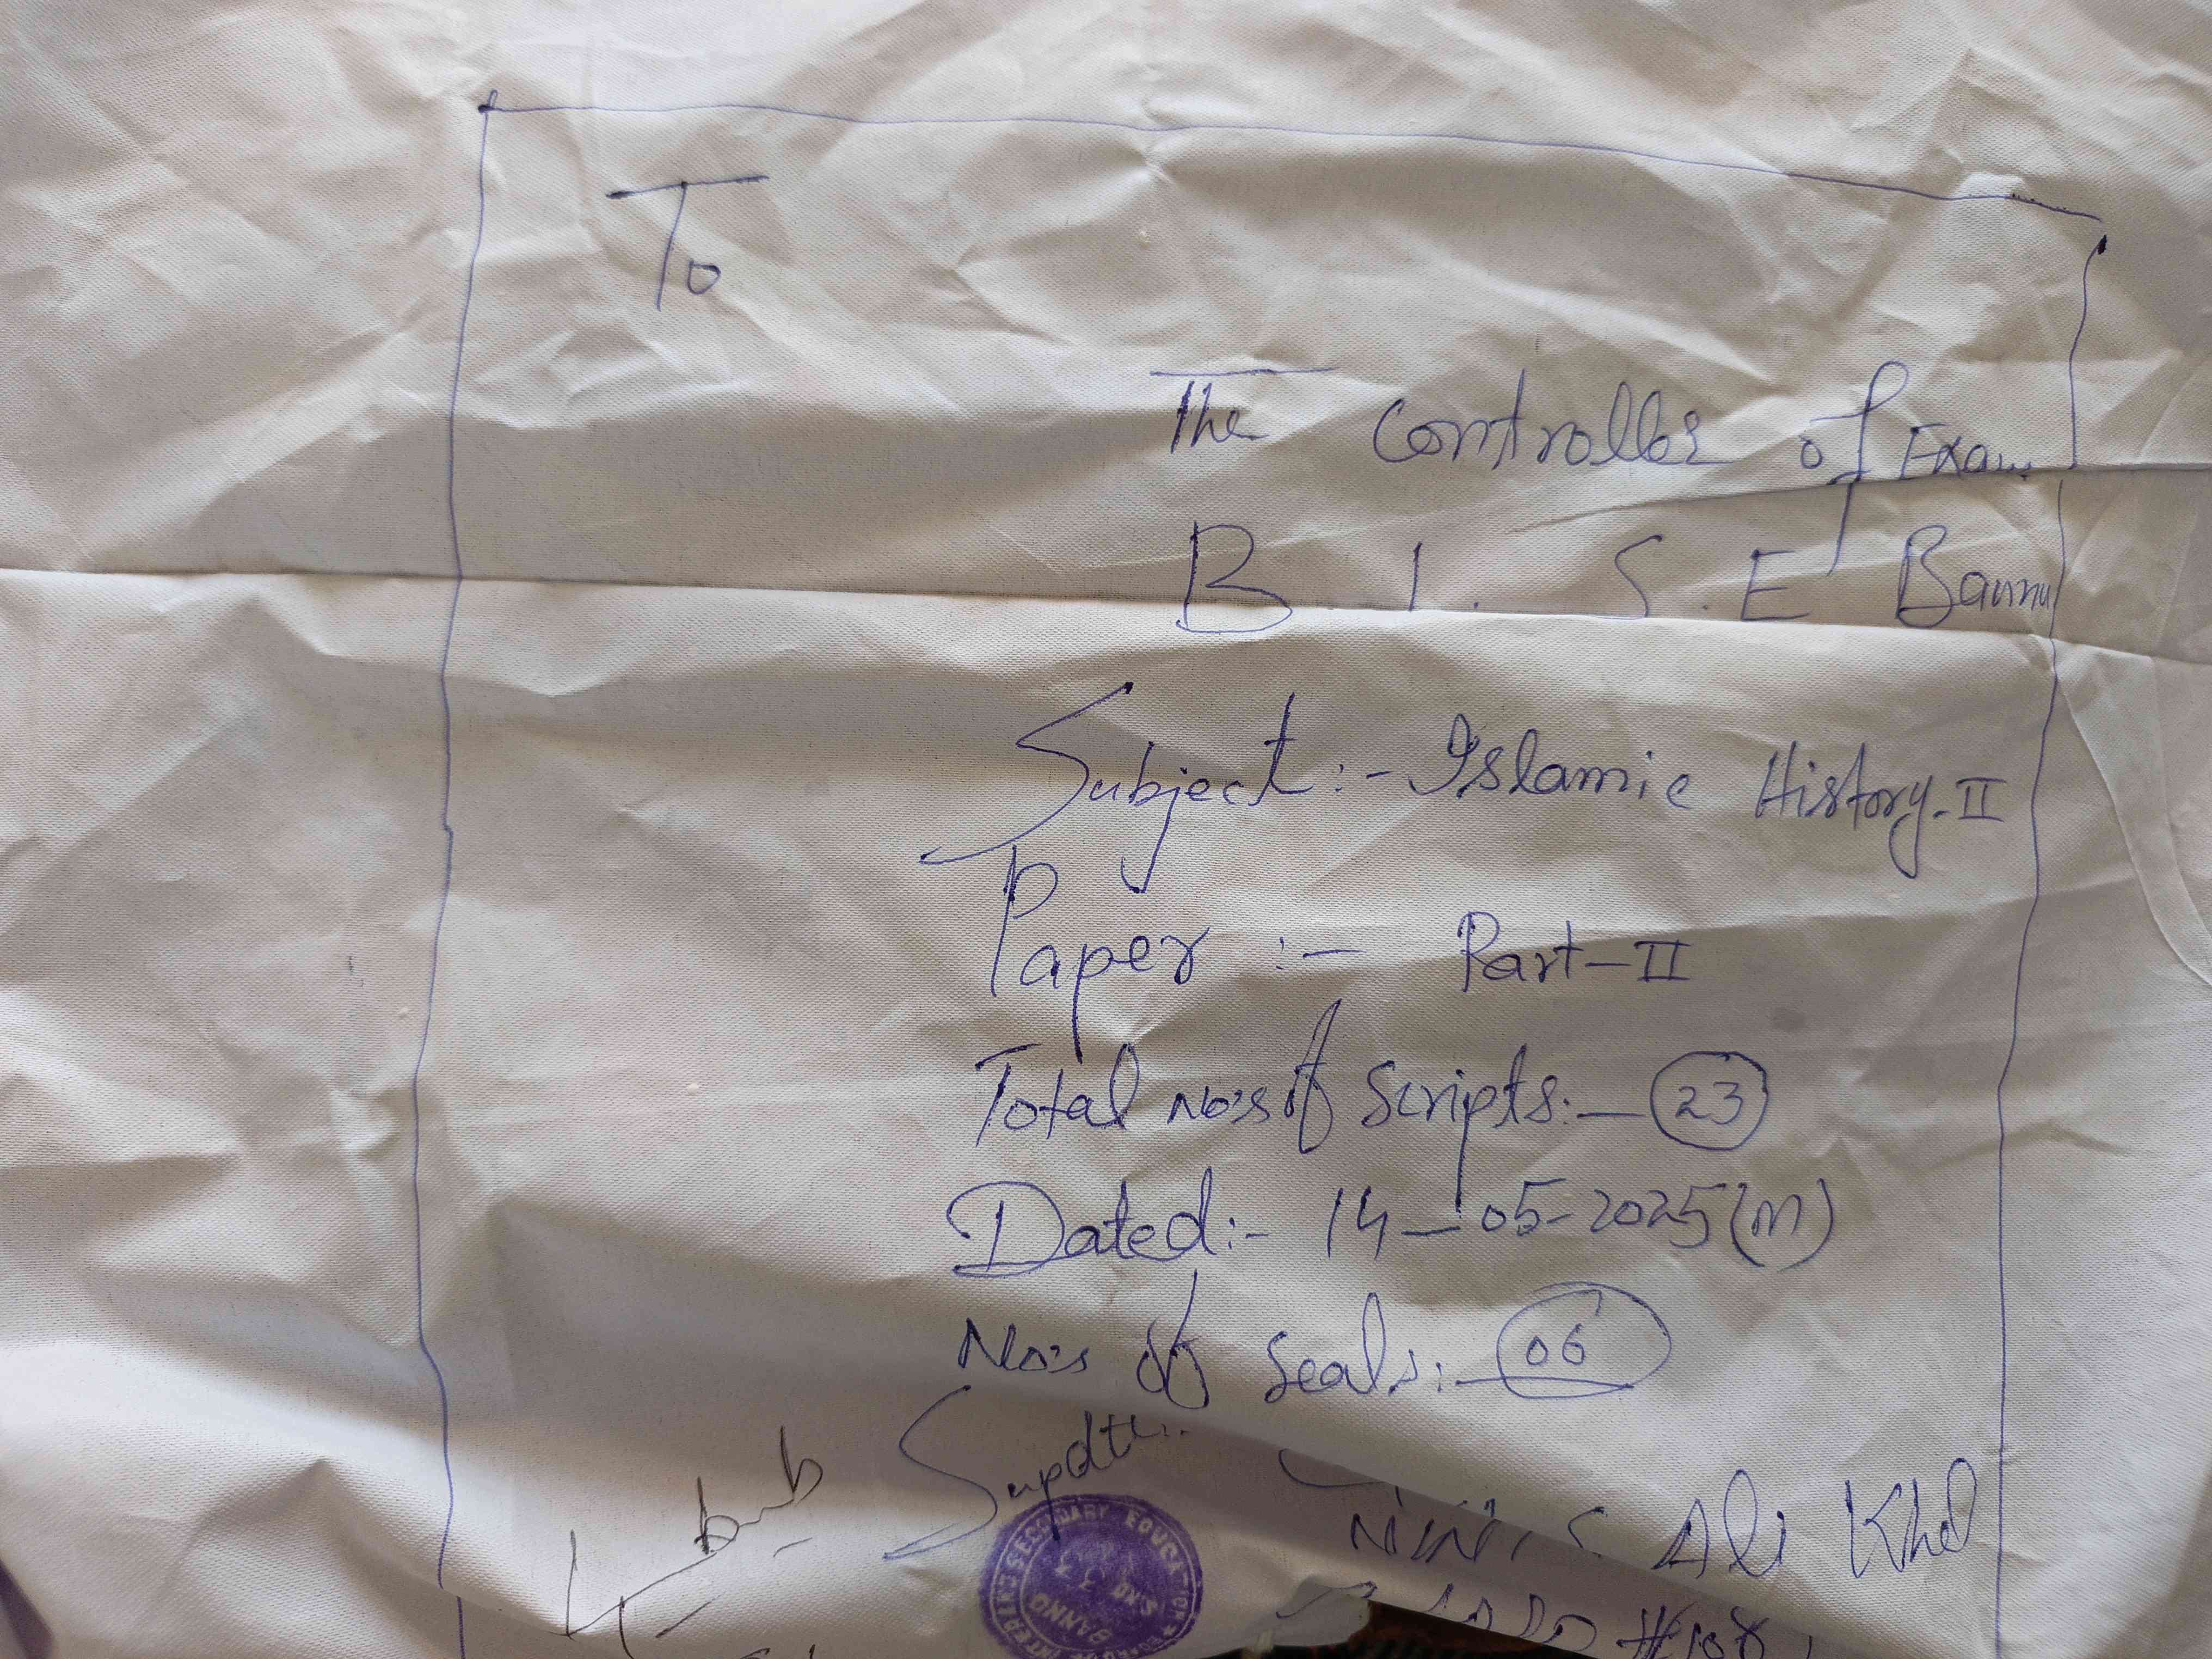 To
The Controller of Exam
B. I. S. E Bannu
Subject:- Islamic History-II
Paper:- Part-II
Total No's of Scripts:- 23
Dated:- 14-05-2025(M)
No's of Seals:- 06
Supdtt:
Ali Khel
INTERMEDIATE & SECONDARY EDUCATION
BANNU